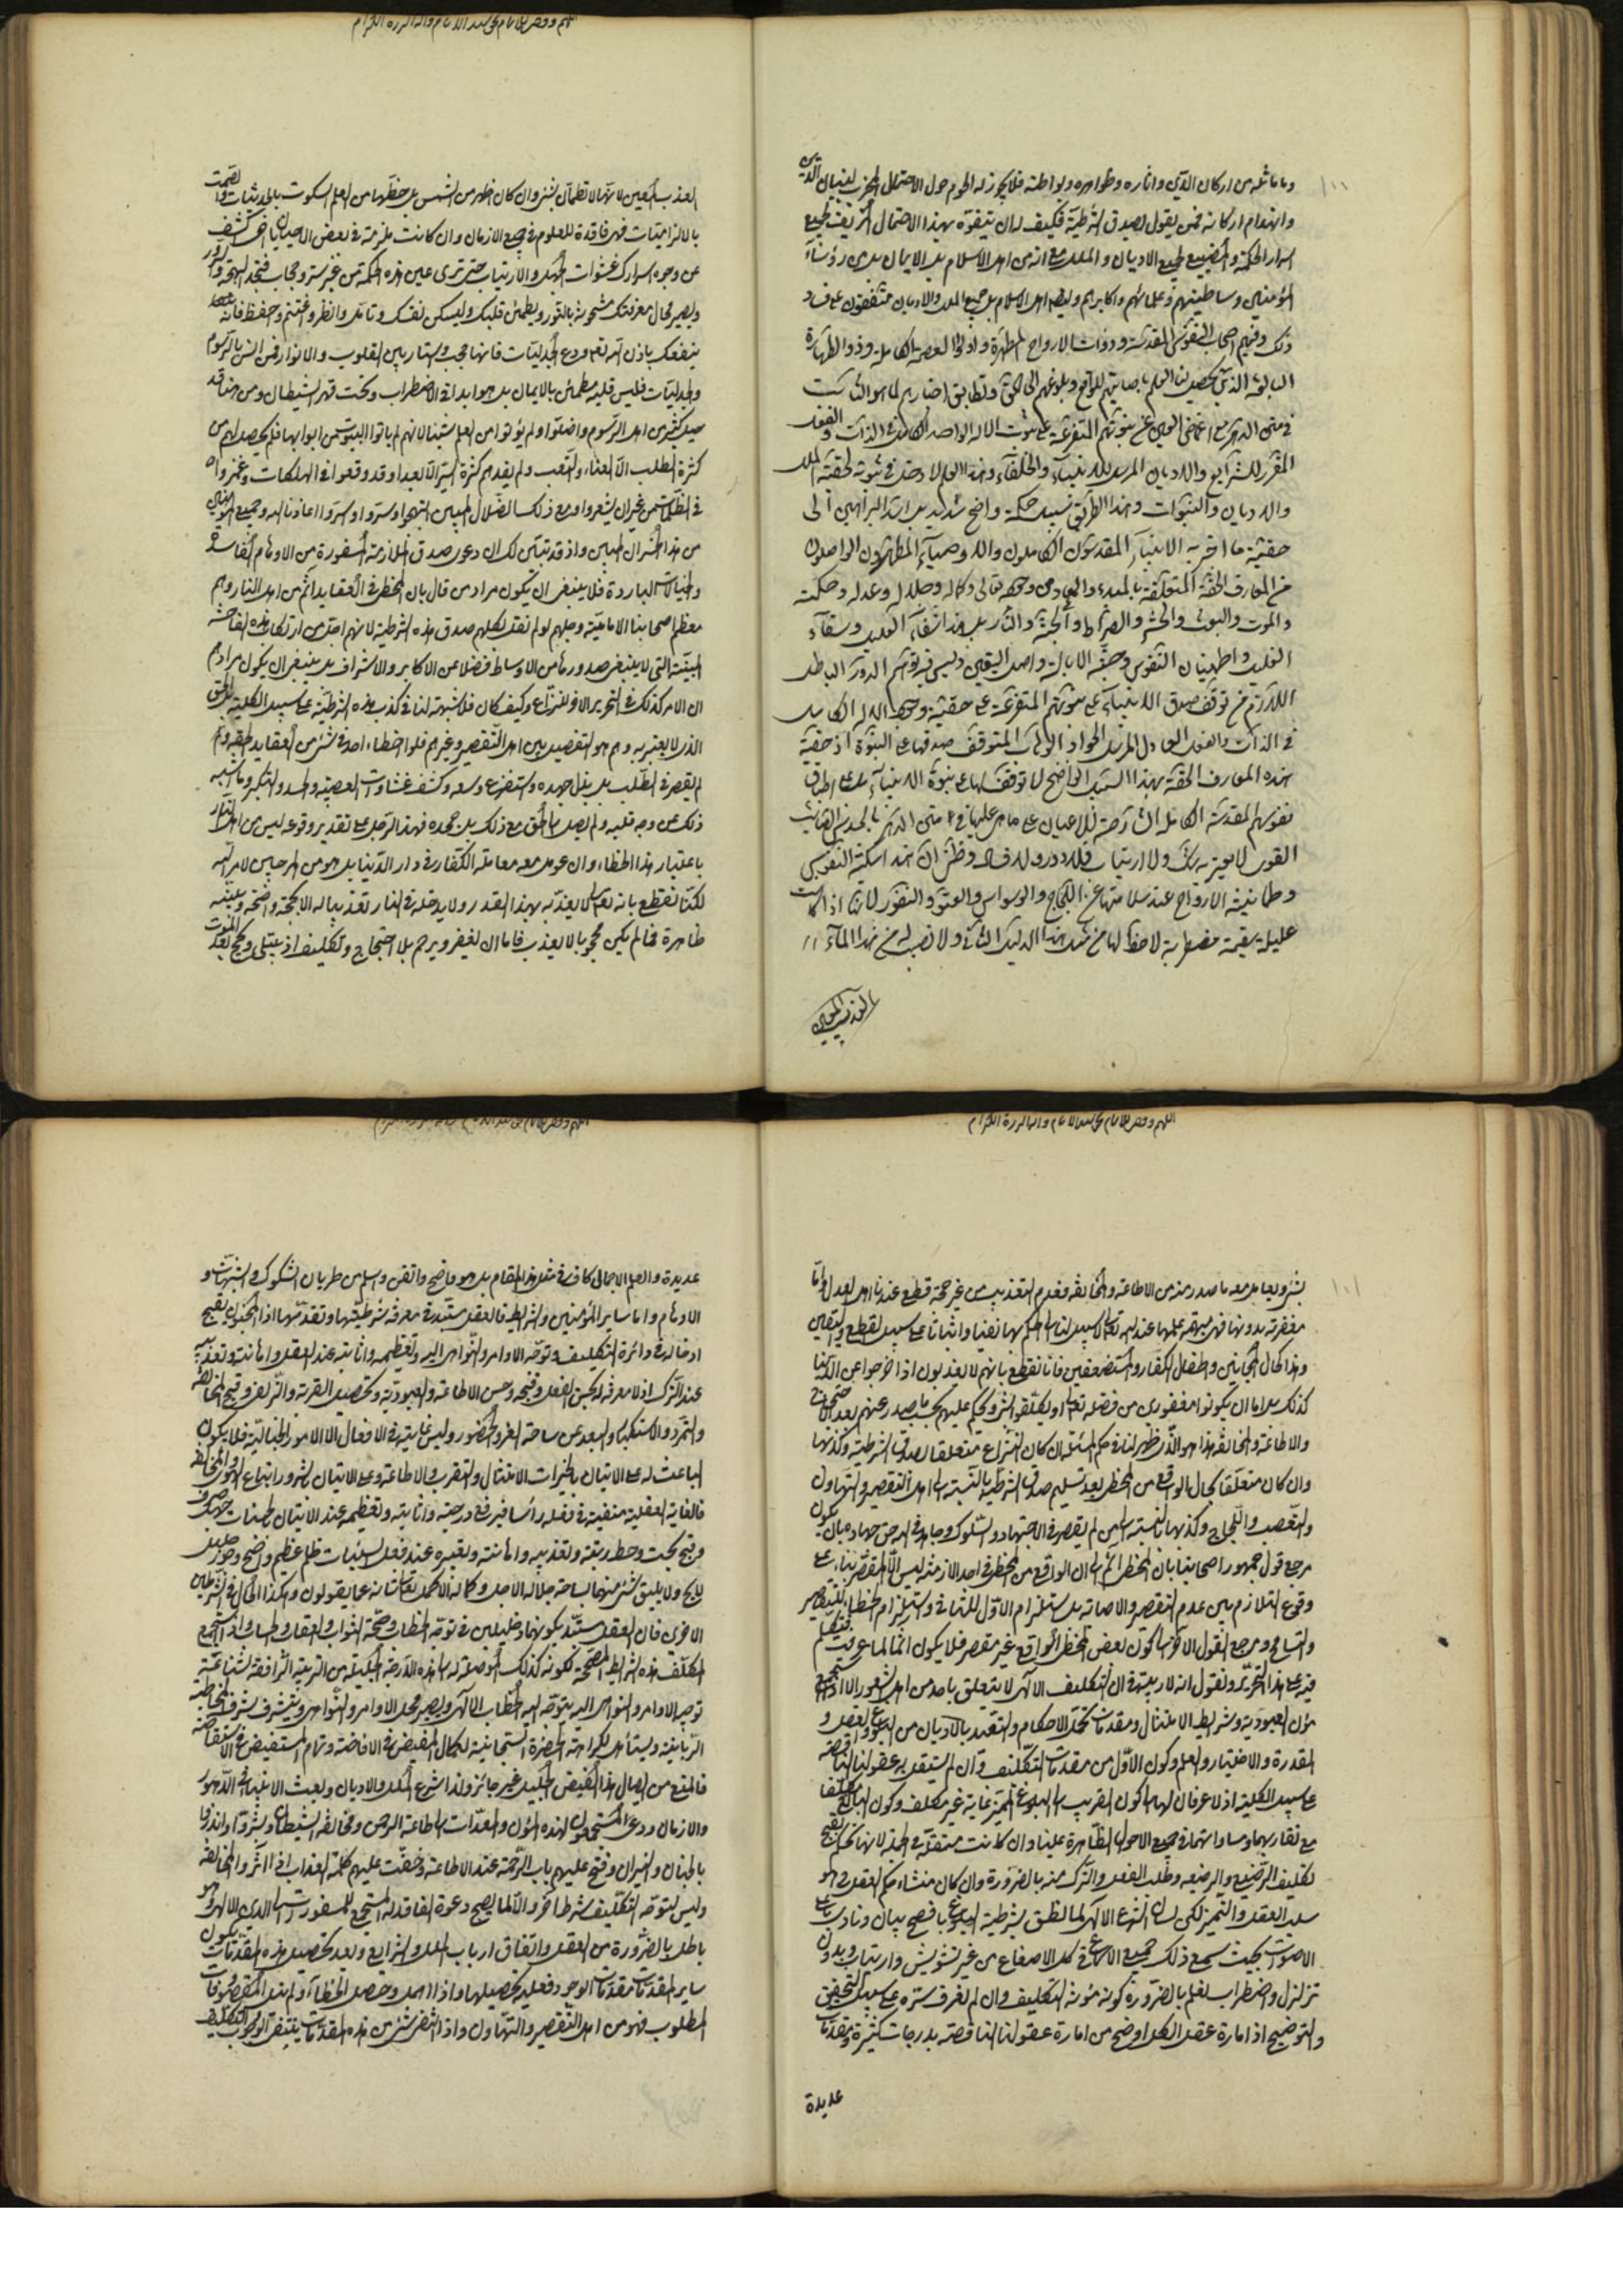 وما ماثله من اركان الدين واثاره وظواهره وبواطنه فلا يجوز له الحوم حول الاحتمال المخرب لبنيان الدين
وانهدام اركانه فمن يقول بصدق الشرطية فكيف له ان يتفوه بهذا الاحتمال
اسرار الحكمة والمضيع لجميع الاديان والملل مع انه من اهل الاسلام بل الايمان بل من رؤساء
المؤمنين وسلاطينهم وعلمائهم واكابرهم وليعلم اهل الاسلام بل جميع الملل والاديان متفقون على فساد
ذلك وفيهم اصحاب النفوس المقدسة وذوات الارواح المطهرة واولو العصمة الكاملة وذوو الطهارة
البالغة الذين يحصل لنا العلم باصابتهم للواقع وبلوغهم الى الحق وتطابق اخبارهم لما هو الثابت
في متن الدهر مع اغماض العين عن نبوتهم المتفرعة على ثبوت الاله الواحد الكامل في الذات والفعل
المقرر للشرايع والاديان المرسل للانبياء والخلفاء وهذا العلم لا دخل في ثبوته لحقية الملل
والاديان والنبوات وهذا الطريق سبيل محكم واضح سديد بل اسد البراهين الى
حقية ما اخبر به الانبياء المقدسون الكاملون والاوصياء المطهرون الواصلون
من المعارف الحقة المتعلقة بالمبدء والمعاد من وجوده تعالى وكماله وجلاله وعدله وحكمته
والموت والبعث والحشر والصراط والجنة والنار بل هذا شفاء العليل وسقاء
الغليل واطمينان النفوس وجنة الابالسة واصل اليقين وليس فيه توهم الدور الباطل
اللازم من توقف صدق الانبياء على نبوتهم المتفرعة على حقية وجود الاله الكامل
في الذات والفعل العادل المرسل الجواد الوهاب المتوقف صدقها على النبوة اذ حقية
هذه المعارف الحقة بهذا السبيل الواضح لا توقف لها على نبوة الانبياء بل على اطباق
نفوسهم المقدسة الكاملة الشارحة للاعيان على ما هي عليها في متن الدهر بالحدس الصائب
القوي لا يعتريه شك ولا ارتياب فلا دور ولا فساد وظني ان هذا سكينة النفوس
وطمانينة الارواح عند سلامتها عن اللجاج والوسواس والعتو والنفور لانها اذا كانت
عليلة سقيمة مضطربة لا حظ لها من مثل هذا الدليل الشافي ولا نصيب له من هذا الماء
العذب المعين
اللهم ووفق للاتمام بحق سيد الانام واله البررة الكرام
العذب المعين لانها لا تطمئن بشيء وان كان اظهر من الشمس بل حظها من العلم السكوت بالجدليات والصمت
بالالزاميات فهي فاقدة للعلوم في جميع الازمان وان كانت ملزمة في بعض الاحيان
عن وجوه اسرارك غشوات الجهل والارتياب حتى ترى عين هذه الحكمة من غير ستر وحجاب فتجد البهجة والسرور
ويصير مجال معرفتك مشحونة بالنور ويطمئن قلبك وليسكن نفسك وتامل وانظر واغتنم واحفظ فانه
ينفعك باذن الله تعالى ودع الجدليات فانها حجب واستار بين القلوب والانوار فمن انس بالرسوم
والجدليات فليس قلبه مطمئن بالايمان بل هو ابدا في الاضطراب وتحت قهر الشيطان ومن هنا قد
صد كثير من اهل الرسوم واضلوا ولم يؤتوا من العلم شيئا لانهم لم ياتوا البيوت من ابوابها فلم يحصل لهم من
كثرة الطلب الا العناء والتعب ولم يفدهم كثرة السير الا بعدا وقد وقعوا في الهلكات وغمروا
في الظلمات من غير ان يشعروا ومع ذلك الضلال المبين ابتهجوا وسروا واستروا اعاذنا الله وجميع المؤمنين
من هذا الخسران المبين واذ قد تبين لك ان دعوى صدق الملازمة المسفورة من الاوهام الفاسدة
والخيالات الباردة فلا ينبغي ان يكون مراد من قال بان المخطئ في العقايد آثم من اهل النار وهم
معظم اصحابنا الامامية وجلهم لو لم نقل كلهم صدق هذه الشرطية لانهم اجل من ارتكاب هذه الفاحشة
المبينة التي لا ينبغي صدورها من الاوساط فضلا عن الاكابر والاشراف بل ينبغي ان يكون مرادهم
ان الامر كذلك في التحرير الاول للنزاع وكيف كان فلا شبهة لنا في كذب هذه الشرطية على سبيل الكلية والحق
الذي لا يعتريه وهم هو التفصيل بين اهل التقصير وغيرهم فلو اخطاء احد في شيء من العقايد الحقة ولم
يقصر في الطلب بل بذل جهده واستفرغ وسعه وكشف غشاوات العصبية والحسد والتكبر وما شبه
ذلك عن وجه قلبه ولم يصل بالحق مع ذلك بل جحده فهذا الرجل على تقدير وقوعه ليس من اهل النار
باعتبار هذا الخطاء وان عومل معه معاملة الكفار في دار الدنيا بل هو من المرجين لامر الله
لكنا نقطع بانه تعالى لا يعذبه بهذا القدر ولا يدخله في النار تعذيبا له الا بحجة واضحة وبينة
ظاهرة فما لم يكن محجوجا لا يعذب فاما ان يغفر ويرحم بلا احتجاج وتكليف اذ يبتلى ويحج بعد الموت
اللهم ووفق للاتمام بحق سيد الانام واله البررة الكرام
بشيء ويعامل معه ما صدر منه من الاطاعة والمخالفة فعدم التعذيب من غير حجة قطعي عندنا اهل العدل واما
مغفرته بدونها فهي مبهمة علمها عند الله تعالى لا سبيل لنا الى العلم بها نفيا واثباتا على سبيل القطع واليقين
وهذا كحال المجانين واطفال الكفار والمستضعفين فانا نقطع بانهم لا يعذبون اذا خرجوا عن الدنيا
كذلك بل اما ان يكونوا مغفورين من فضله تعالى او يكلفوا بشيء ويحكم عليهم بحسب ما يصدر عنهم بعد الامتحان
والاطاعة والمخالفة هذا هو الذي ظهر لنا في حكم المسئلة ان كان النزاع متعلقا بصدق الشرطية وكذبها
وان كان متعلقا بحال الواقع من المخطئ بعد تسليم صدق الشرطية بالنسبة الى اهل التقصير والتهاون
والتعصب واللجاج وكذبها بالنسبة الى من لم يقصر في الاجتهاد والسلوك وجاهد في الله حق جهاده بان يكون
مرجع قول جمهور اصحابنا بان المخطئ آثم الى ان الواقع من المخطئ في احد الازمنة ليس الا المقصر بناء على
وقوع التلازم بين عدم التقصير والاصابة بل استلزام الاول للثاني واستلزام الخطاء للتقصير
والتسامح ومرجع القول الاخر الى كون بعض المخطئ الواقع غير مقصر فلا يكون آثما لما عرفت فنتكلم
فيه على هذا التحرير ونقول انه لا ريب في ان التكليف الالهي لا يتعلق باحد من اهل الشعور الا اذا استجمع
مؤن العبودية وشرايط الامتثال ومقدمات تحمل الاحكام والتعبد بالاديان من البلوغ والعقل و
القدرة والاختيار والعلم وكون الاول من مقدمات التكليف وان لم يستقل به عقولنا الناقصة
على سبيل الكلية اذ لا عرفان لها الى كون القريب الى البلوغ المميز غاية غير مكلف وكون البالغ مكلفا
مع تقاربهما ومساواتهما في جميع الاحوال الظاهرة علينا وان كانت مستقلة في الجملة لانها تحكم بقبح
تكليف الرضيع والرضيعه وطلب الفعل والترك منه بالضرورة وان كان منشاء حكم العقل هو
سلب العقل والتميز لكن لسان الشرع الالهي لما نطق بشرطية البلوغ بافصح بيان ونادى باعلى
الاصوات بحيث سمع ذلك جميع الاسماع في كل الاصقاع من غير تشويش وارتياب وبدون
تزلزل واضطراب لنعلم بالضرورة كونه مؤنة التكليف وان لم نعرف سره على سبيل التحقيق
والتوضيح اذ امارة عقل الكل اوضح من امارة عقولنا الناقصة بدرجات كثيرة ومقدمات
عديدة
اللهم ووفق للاتمام بحق سيد الانام واله البررة الكرام
عديدة والعلم الاجمالي كاف في مثل هذا المقام بل هو اوضح واتقن واسلم من طريان الشكوك والشبهات و
الاوهام واما ساير المؤمنين والشرايط فالعقل مستبد في معرفة شرطيتها وتقدمها اذ المجنون يقبح
ادخاله في دائرة التكليف وتوجه الاوامر والنواهي اليه وتعظيمه واثابته عند الفعل واهانته وتعذيبه
عند الترك اذ لا معرفة له بحسن الفعل وقبحه وحسن الاطاعة والعبودية وتحصيل القربة والزلفى وقبح المخالفة
والتمرد والاستكبار والبعد عن ساحة العز والحضور وليس غايته في الافعال الا الامور الخيالية فلا يكون
الباعث له على الاتيان بالخيرات الامتثال والتقرب والاطاعة وعلى الاتيان بالشرور اتباع الهوى والمخالفة
فالغاية العقلية منفية في فعله راسا فيرفع درجته واثابته وتعظيمه عند الاتيان بالحسنات جهل صرف
وقبح بحت وحط رتبته وتعذيبه واهانته وتعييره عند فعل السيئات ظلم عظيم واضح وجور جلي
لايح ولا يليق شيء منهما بساحة جلاله الاجل وكماله الاكمل تعالى شانه عما يقولون وهكذا الحال في الشرطين
الاخرين فان العقل مستبد بكونهما دخيلين في توجه الخطاب وصحة الثواب والعقاب والحساب واذا استجمع
المكلف هذه الشرايط المصححة لكونه كذلك الموصلة له الى هذه الدرجة الجليلة من التربية الشرافة لشناعة
توجيه الاوامر والنواهي اليه يتوجه اليه الخطاب الالهي ويصير محل الاوامر والنواهي ويتشرف بشرف المخاطبة
الربانية ويستأهل لكرامة الحضرة السبحانية لكمال المفيض في الافاضة وتمام المستفيض في الاستفاضة
فالمنع من ايصال هذا الفيض الجليل غير جائز ولذا شرع الملل والاديان وبعث الانبياء في الدهور
والازمان ودعى المستجمعون لهذه المؤن والمعدات الى اطاعة الرحمن ومخالفة الشيطان وبشروا وانذروا
بالجنان والنيران وفتح عليهم باب الرحمة عند الاطاعة وحقت عليهم كلمة العذاب اذا آثروا المخالفة
وليس لتوجه التكليف شرط اخر والا لما يصح دعوة الفاقد له المستجمع للمسفورات الى الدين الالهي وهو
باطل بالضرورة من العقل واتفاق ارباب الملل والشرايع وبعد تحصيل هذه المقدمات يكون
ساير المقدمات مقدمات الوجود فعليه تحصيلها واذا اهمل وحصل الخطاء ولم ينل المقصود وفات
المطلوب فهو من اهل التقصير والتهاون واذا انتفى شيء من هذه المقدمات ينتفي الوجوب والتكليف